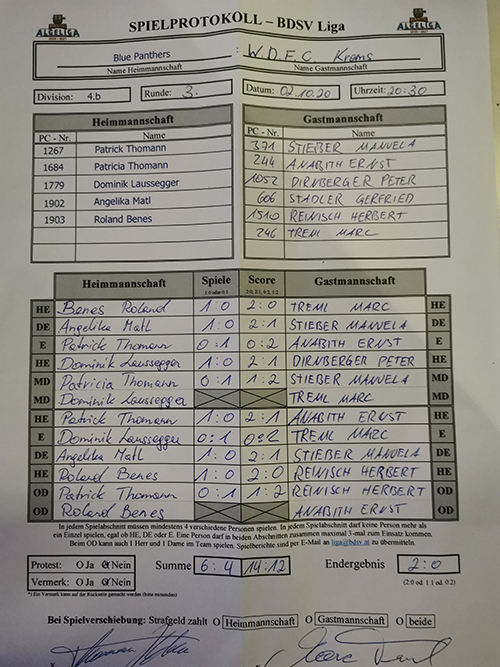 ALGELIGA
SPIELPROTOKOLL – BDSV Liga
ALGELIGA
Blue Panthers : W.D.F.C. Krems
Name Heimmannschaft Name Gastmannschaft
Division: 4.b Runde: 3. Datum: 02.10.20 Uhrzeit: 20:30
Heimmannschaft Gastmannschaft
PC - Nr. Name PC - Nr. Name
1267 Patrick Thomann 371 STIEBER MANUELA
1684 Patricia Thomann 244 ANABITH ERNST
1779 Dominik Laussegger 1052 DIRNBERGER PETER
1902 Angelika Matl 606 STADLER GERFRIED
1903 Roland Benes 1510 REINISCH HERBERT
246 TREML MARC
Heimmannschaft Spiele Score Gastmannschaft
1:0 oder 0:1 2:0, 2:1, 0:2, 1:2
HE Benes Roland 1:0 2:0 TREML MARC HE
DE Angelika Matl 1:0 2:1 STIEBER MANUELA DE
E Patrick Thomann 0:1 0:2 ANABITH ERNST E
HE Dominik Laussegger 1:0 2:1 DIRNBERGER PETER HE
MD Patricia Thomann 0:1 1:2 STIEBER MANUELA MD
MD Dominik Laussegger TREML MARC MD
HE Patrick Thomann 1:0 2:1 ANABITH ERNST HE
E Dominik Laussegger 0:1 0:2 TREML MARC E
DE Angelika Matl 1:0 2:1 STIEBER MANUELA DE
HE Roland Benes 1:0 2:0 REINISCH HERBERT HE
OD Patrick Thomann 0:1 1:2 REINISCH HERBERT OD
OD Roland Benes ANABITH ERNST OD
In jedem Spielabschnitt müssen mindestens 4 verschiedene Personen spielen. In jedem Spielabschnitt darf keine Person mehr als
ein Einzel spielen, egal ob HE, DE oder E. Eine Person darf in beiden Abschnitten zusammen maximal 3-mal zum Einsatz kommen.
Beim OD kann auch 1 Herr und 1 Dame im Team spielen. Spielberichte sind per E-Mail an liga@bdsv.at zu übermitteln.
Protest: O Ja O Nein Summe 6:4 14:12 Endergebnis 2:0
Vermerk: O Ja O Nein (2:0 od. 1:1 od. 0:2)
*) Ein Vermerk kann auf der Rückseite gemacht werden (bitte ankreuzen)
Bei Spielverschiebung: Strafgeld zahlt O Heimmannschaft O Gastmannschaft O beide